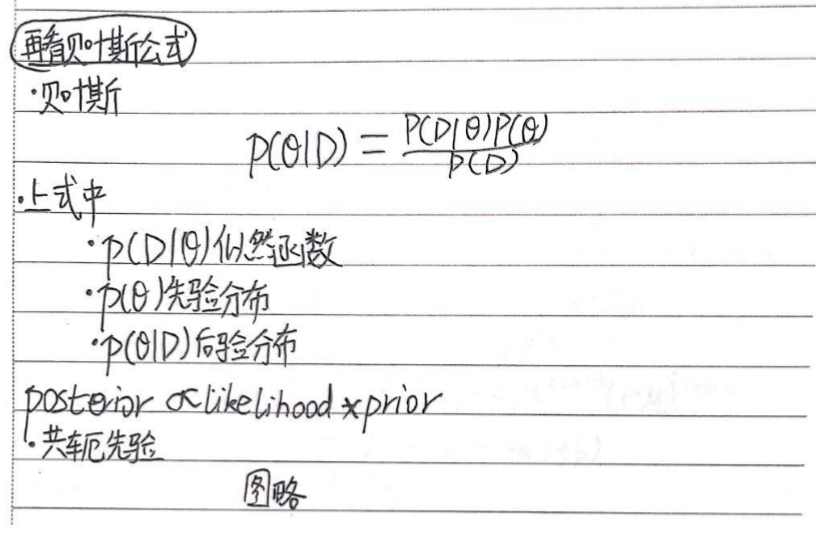 再看贝叶斯公式
·贝叶斯
p(θ|D) = P(D|θ)P(θ) / P(D)
·上式中
·p(D|θ)似然函数
·p(θ)先验分布
·p(θ|D)后验分布
posterior ∝ likelihood * prior
·共轭先验
图略